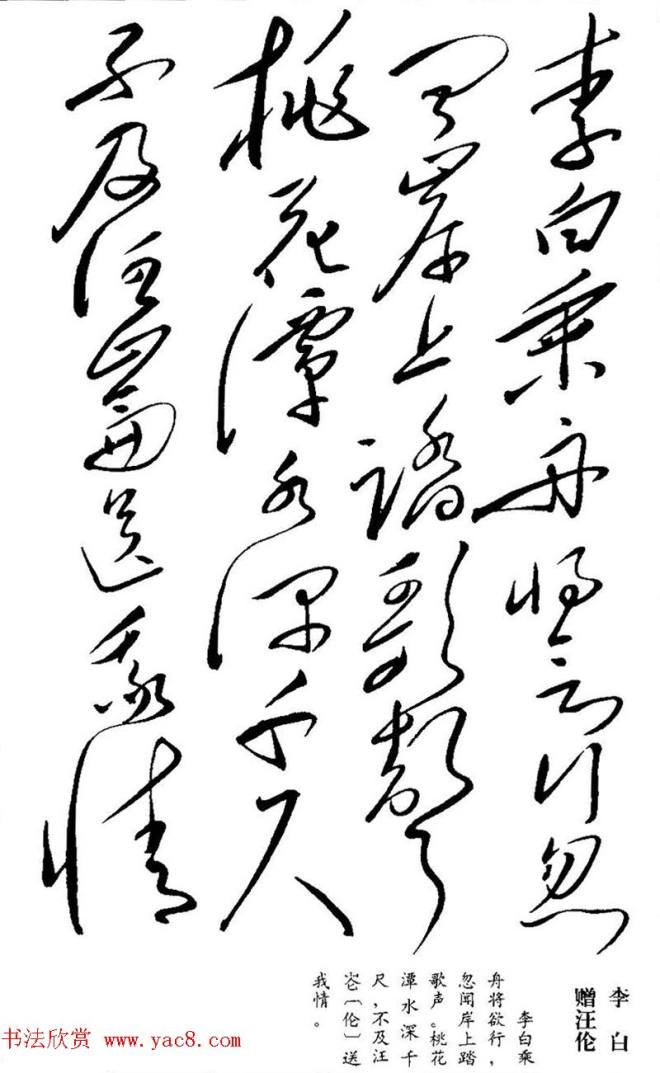 李白乘舟將欲行忽
聞岸上踏歌聲
桃花潭水深千尺
不及汪崙送我情
李 白
赠汪伦
李白乘
舟将欲行，
忽闻岸上踏
歌声。桃花
潭水深千
尺，不及汪
崙〔伦〕送
我情。
书法欣赏 www.yac8.com